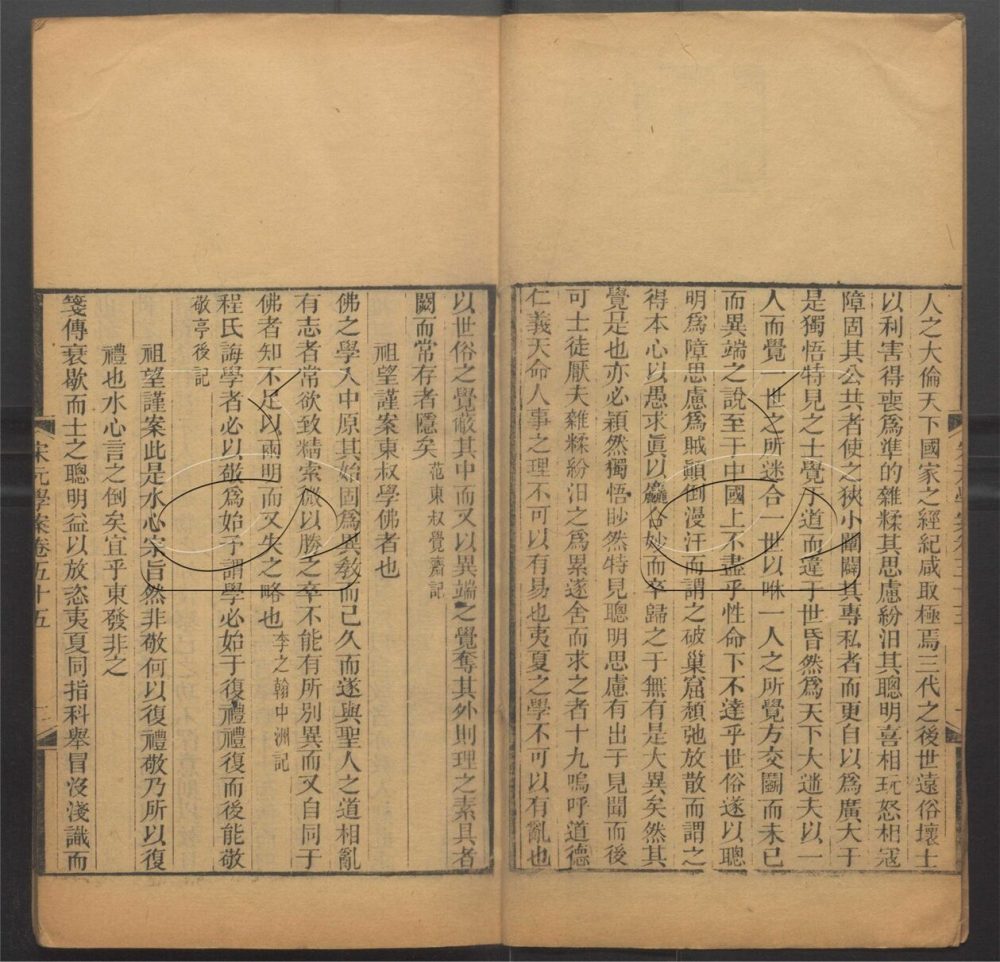 人之大倫天下國家之經紀咸取極焉三代之後世遠俗壞士
以利害得喪爲準的雜糅其思慮紛汨其聰明喜相玩怒相寇
障固其公共者使之狹小闡闢其專私者而更自以爲廣大于
是獨悟特見之士覺于道而違于世昏然爲天下大迷夫以一
人而覺一世之所迷合一世以咻一人之所覺方交鬭而未已
而異端之說至于中國上不盡乎性命下不達乎世俗遂以聰
明爲障思慮爲賊顛倒漫汗而謂之破巢窟頹弛放散而謂之
得本心以愚求眞以麤合妙而卒歸之于無有是大異矣然其
覺是也亦必穎然獨悟眇然特見聰明思慮有出于見聞而後
可士徒厭夫雜糅紛汨之爲累遂舍而求之者十九嗚呼道德
仁義天命人事之理不可以有易也夷夏之學不可以有亂也
以世俗之覺蔽其中而又以異端之覺奪其外則理之素具者
闕而常存者隱矣 范東叔覺齋記
祖望謹案東叔學佛者也
佛之學入中原其始固爲異敎而已久而遂與聖人之道相亂
有志者常欲致精索微以勝之卒不能有所別異而又自同于
佛者知不足以兩明而又失之略也 李之翰中洲記
程氏誨學者必以敬爲始予謂學必始于復禮禮復而後能敬
敬亭後記
祖望謹案此是水心宗旨然非敬何以復禮敬乃所以復
禮也水心言之倒矣宜乎東發非之
箋傳衰歇而士之聰明益以放恣夷夏同指科舉冒沒淺識而
宋元學案卷五十五